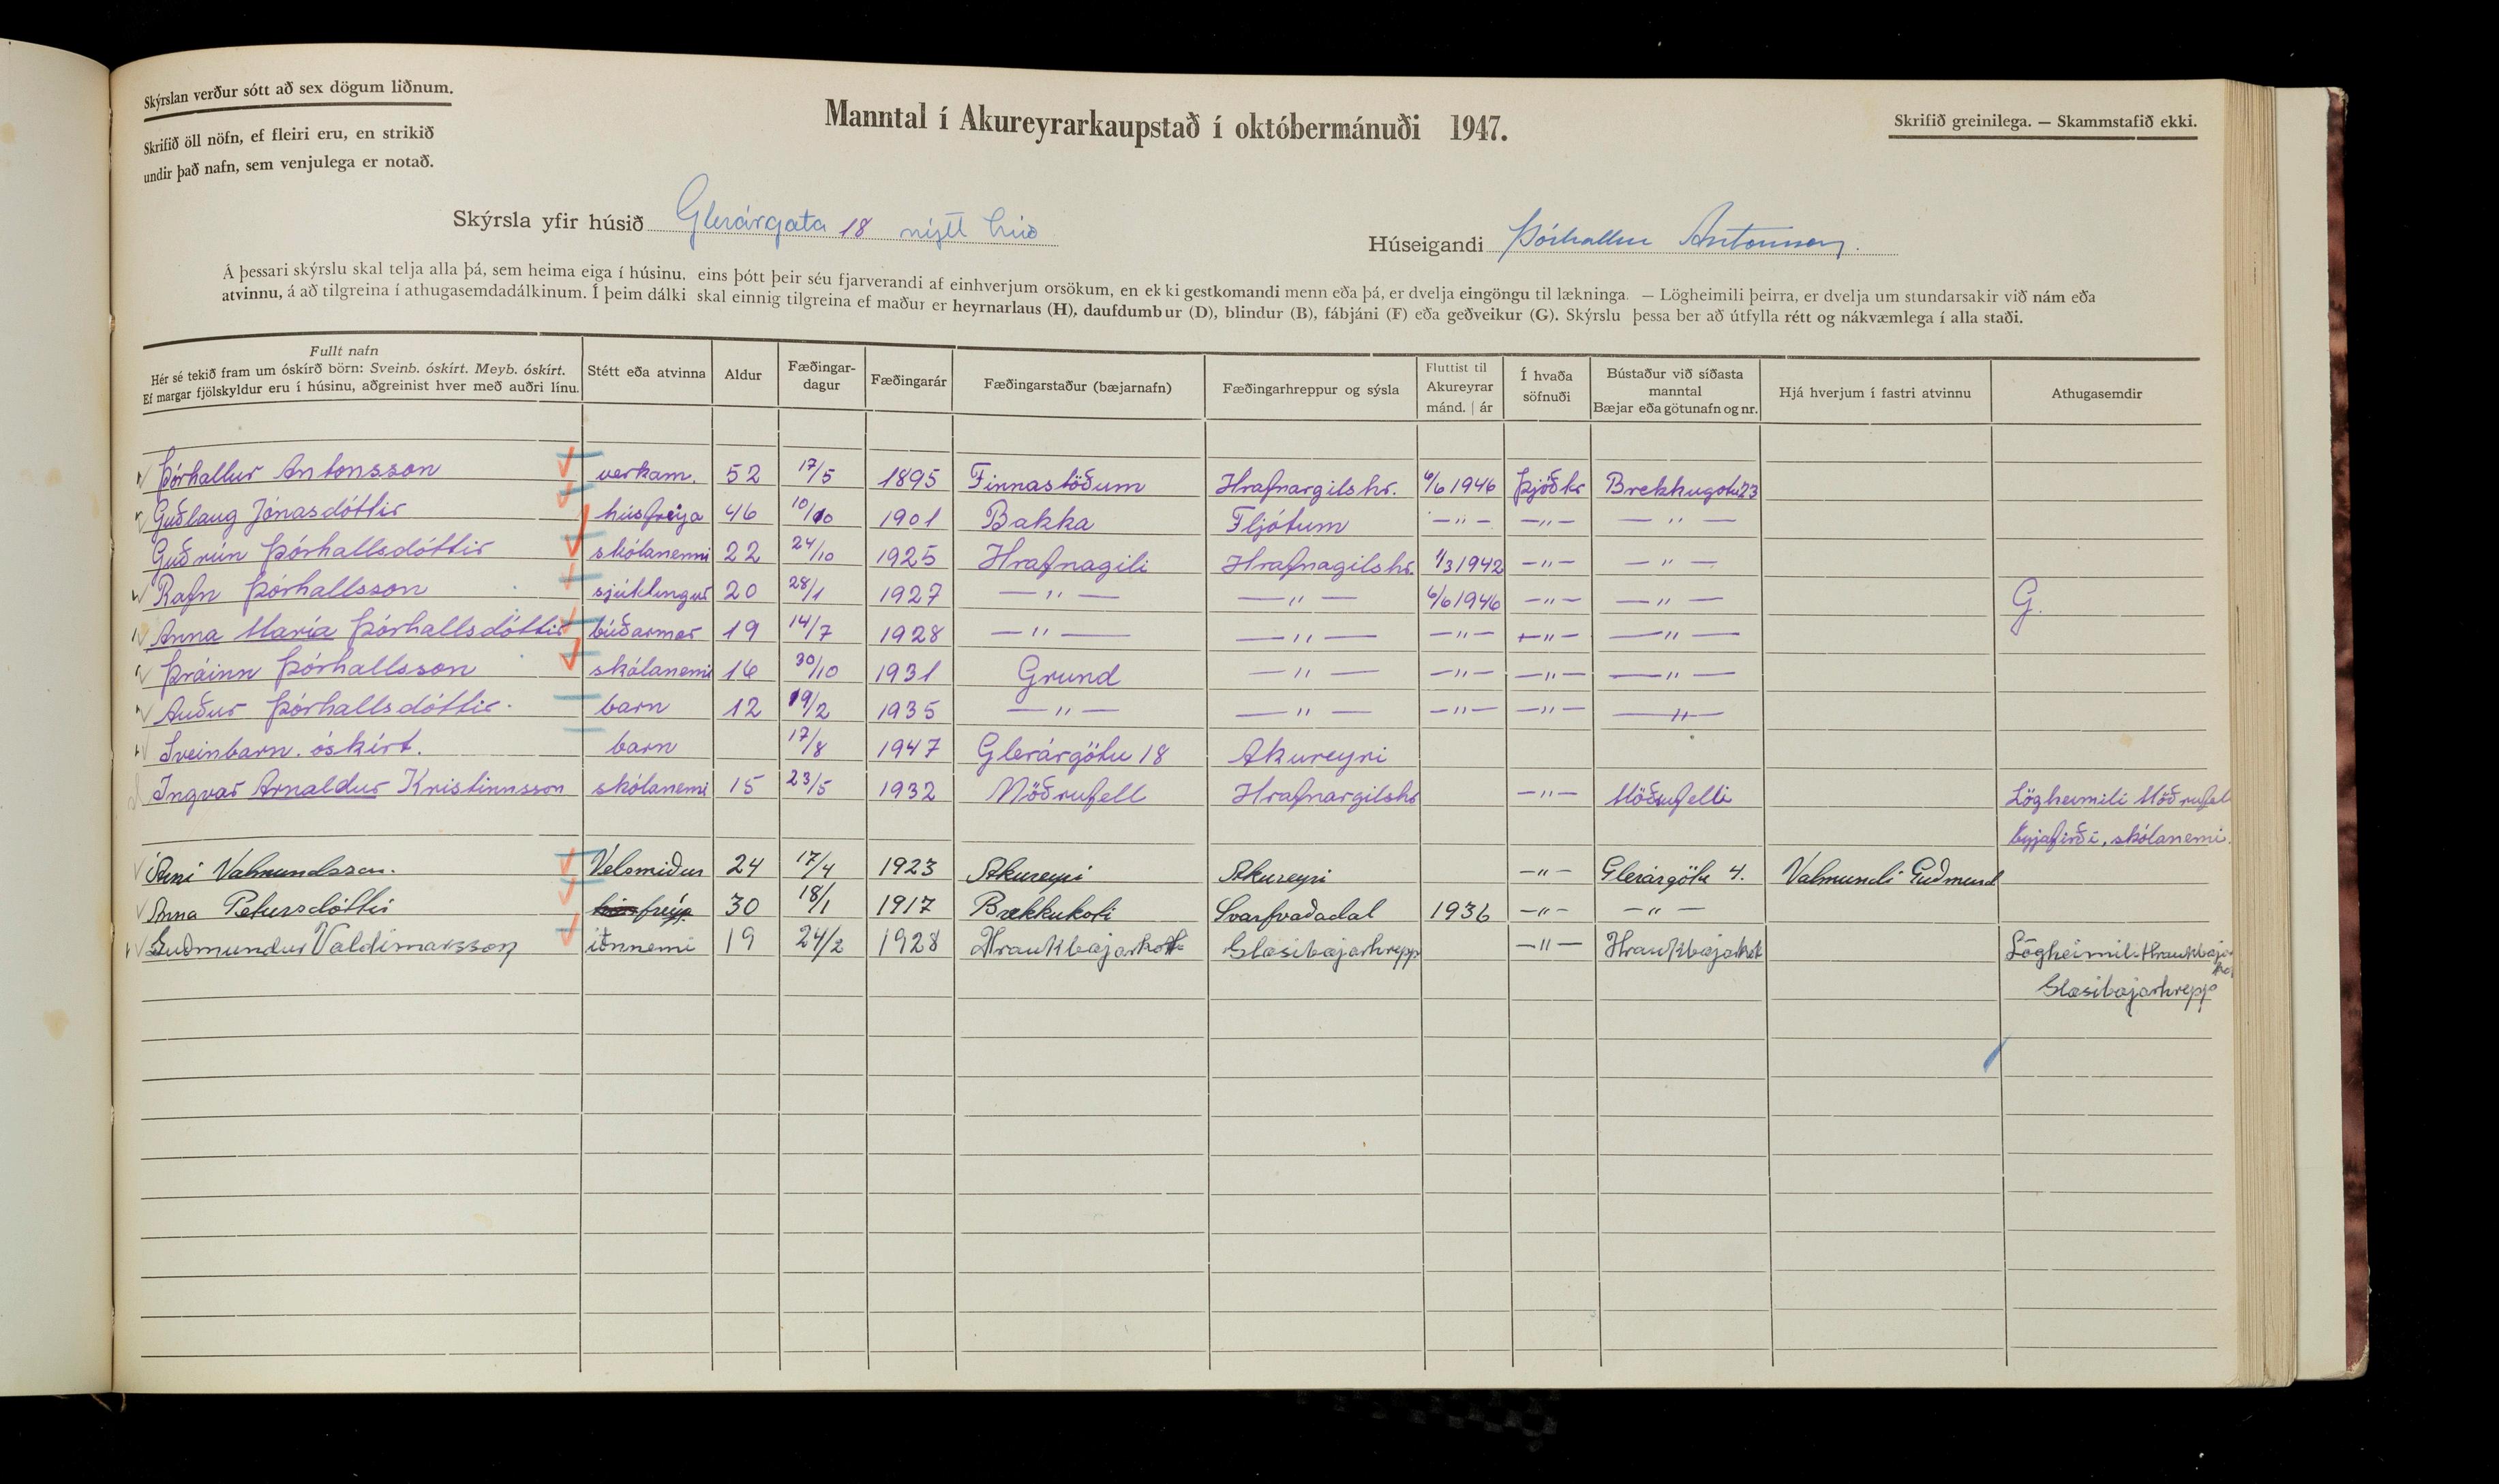 Skýrslan verður sótt að sex dögum liðnum.
Skrifið öll nöfn, ef fleiri eru, en strikið
undir það nafn, sem venjulega er notað.
Manntal í Akureyrarkaupstað í októbermánuði 1947.
Skrifið greinilega. — Skammstafið ekki.
Skýrsla yfir húsið Glerárgata 18 nýtt hús
Húseigandi Þórhallur Antonsson
Á þessari skýrslu skal telja alla þá, sem heima eiga í húsinu, eins þótt þeir séu fjarverandi af einhverjum orsökum, en ekki gestkomandi menn eða þá, er dvelja eingöngu til lækninga. — Lögheimili þeirra, er dvelja um stundarsakir við nám eða
atvinnu, á að tilgreina í athugasemdadálkinum. Í þeim dálki skal einnig tilgreina ef maður er heyrnarlaus (H), daufdumbur (D), blindur (B), fábjáni (F) eða geðveikur (G). Skýrslu þessa ber að útfylla rétt og nákvæmlega í alla staði.
Fullt nafn
Hér sé tekið fram um óskírð börn: Sveinb. óskírt. Meyb. óskírt.
Ef margar fjölskyldur eru í húsinu, aðgreinist hver með auðri línu.
Stétt eða atvinna
Aldur
Fæðingar-
dagur
Fæðingarár
Fæðingarstaður (bæjarnafn)
Fæðingarhreppur og sýsla
Fluttist til
Akureyrar
mánd. | ár
Í hvaða
söfnuði
Bústaður við síðasta
manntal
Bæjar eða götunafn og nr.
Hjá hverjum í fastri atvinnu
Athugasemdir
Þórhallur Antonsson verkam. 52 17/5 1895 Finnastöðum Hrafnargilshr. 6/6 1946 Þjóðkr Brekkugötu 23
Guðlaug Jónasdóttir húsfreyja 46 10/10 1901 Bakka Fljótum —"— —"— —"—
Guðrún Þórhallsdóttir skólanemi 22 24/10 1925 Hrafnagili Hrafnagilshr. 1/3 1942 —"— —"—
Rafn Þórhallsson sjúklingur 20 28/1 1927 —"— —"— 6/6 1946 —"— —"— G.
Anna María Þórhallsdóttir búðarmær 19 14/7 1928 —"— —"— —"— —"— —"—
Þráinn Þórhallsson skólanemi 16 30/10 1931 Grund —"— —"— —"— —"—
Auður Þórhallsdóttir. barn 12 19/2 1935 —"— —"— —"— —"— —"—
Sveinbarn. óskírt. barn 17/8 1947 Glerárgötu 18 Akureyri
Ingvar Arnaldur Kristinnsson skólanemi 15 23/5 1932 Möðrufell Hrafnargilshr —"— Möðrufelli Lögheimili Möðrufell
Eyjafirði, skólanemi.
Árni Valmundsson. Vélsmiður 24 17/4 1923 Akureyri Akureyri —"— Glerárgötu 4. Valmundi Guðmund
Anna Pétursdóttir húsfreyja 30 18/1 1917 Brekkukoti Svarfvaðadal 1936 —"— —"—
Guðmundur Valdimarsson iðnnemi 19 24/2 1928 Hraukbæjarkoti Glæsibæjarhrepp —"— Hraukbæjarkot Lögheimili Hraukbæjar
kot
Glæsibæjarhrepp